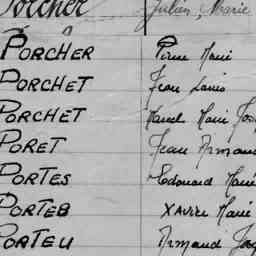 Porcher Julien, Marie
PORCHER Pierre Marie
PORCHET Jean Louis
PORCHET Marcel Marie
PORET Jean Armand
PORTES Edouard Marie
PORTEB XAVIER Marie
PORTEU Armand